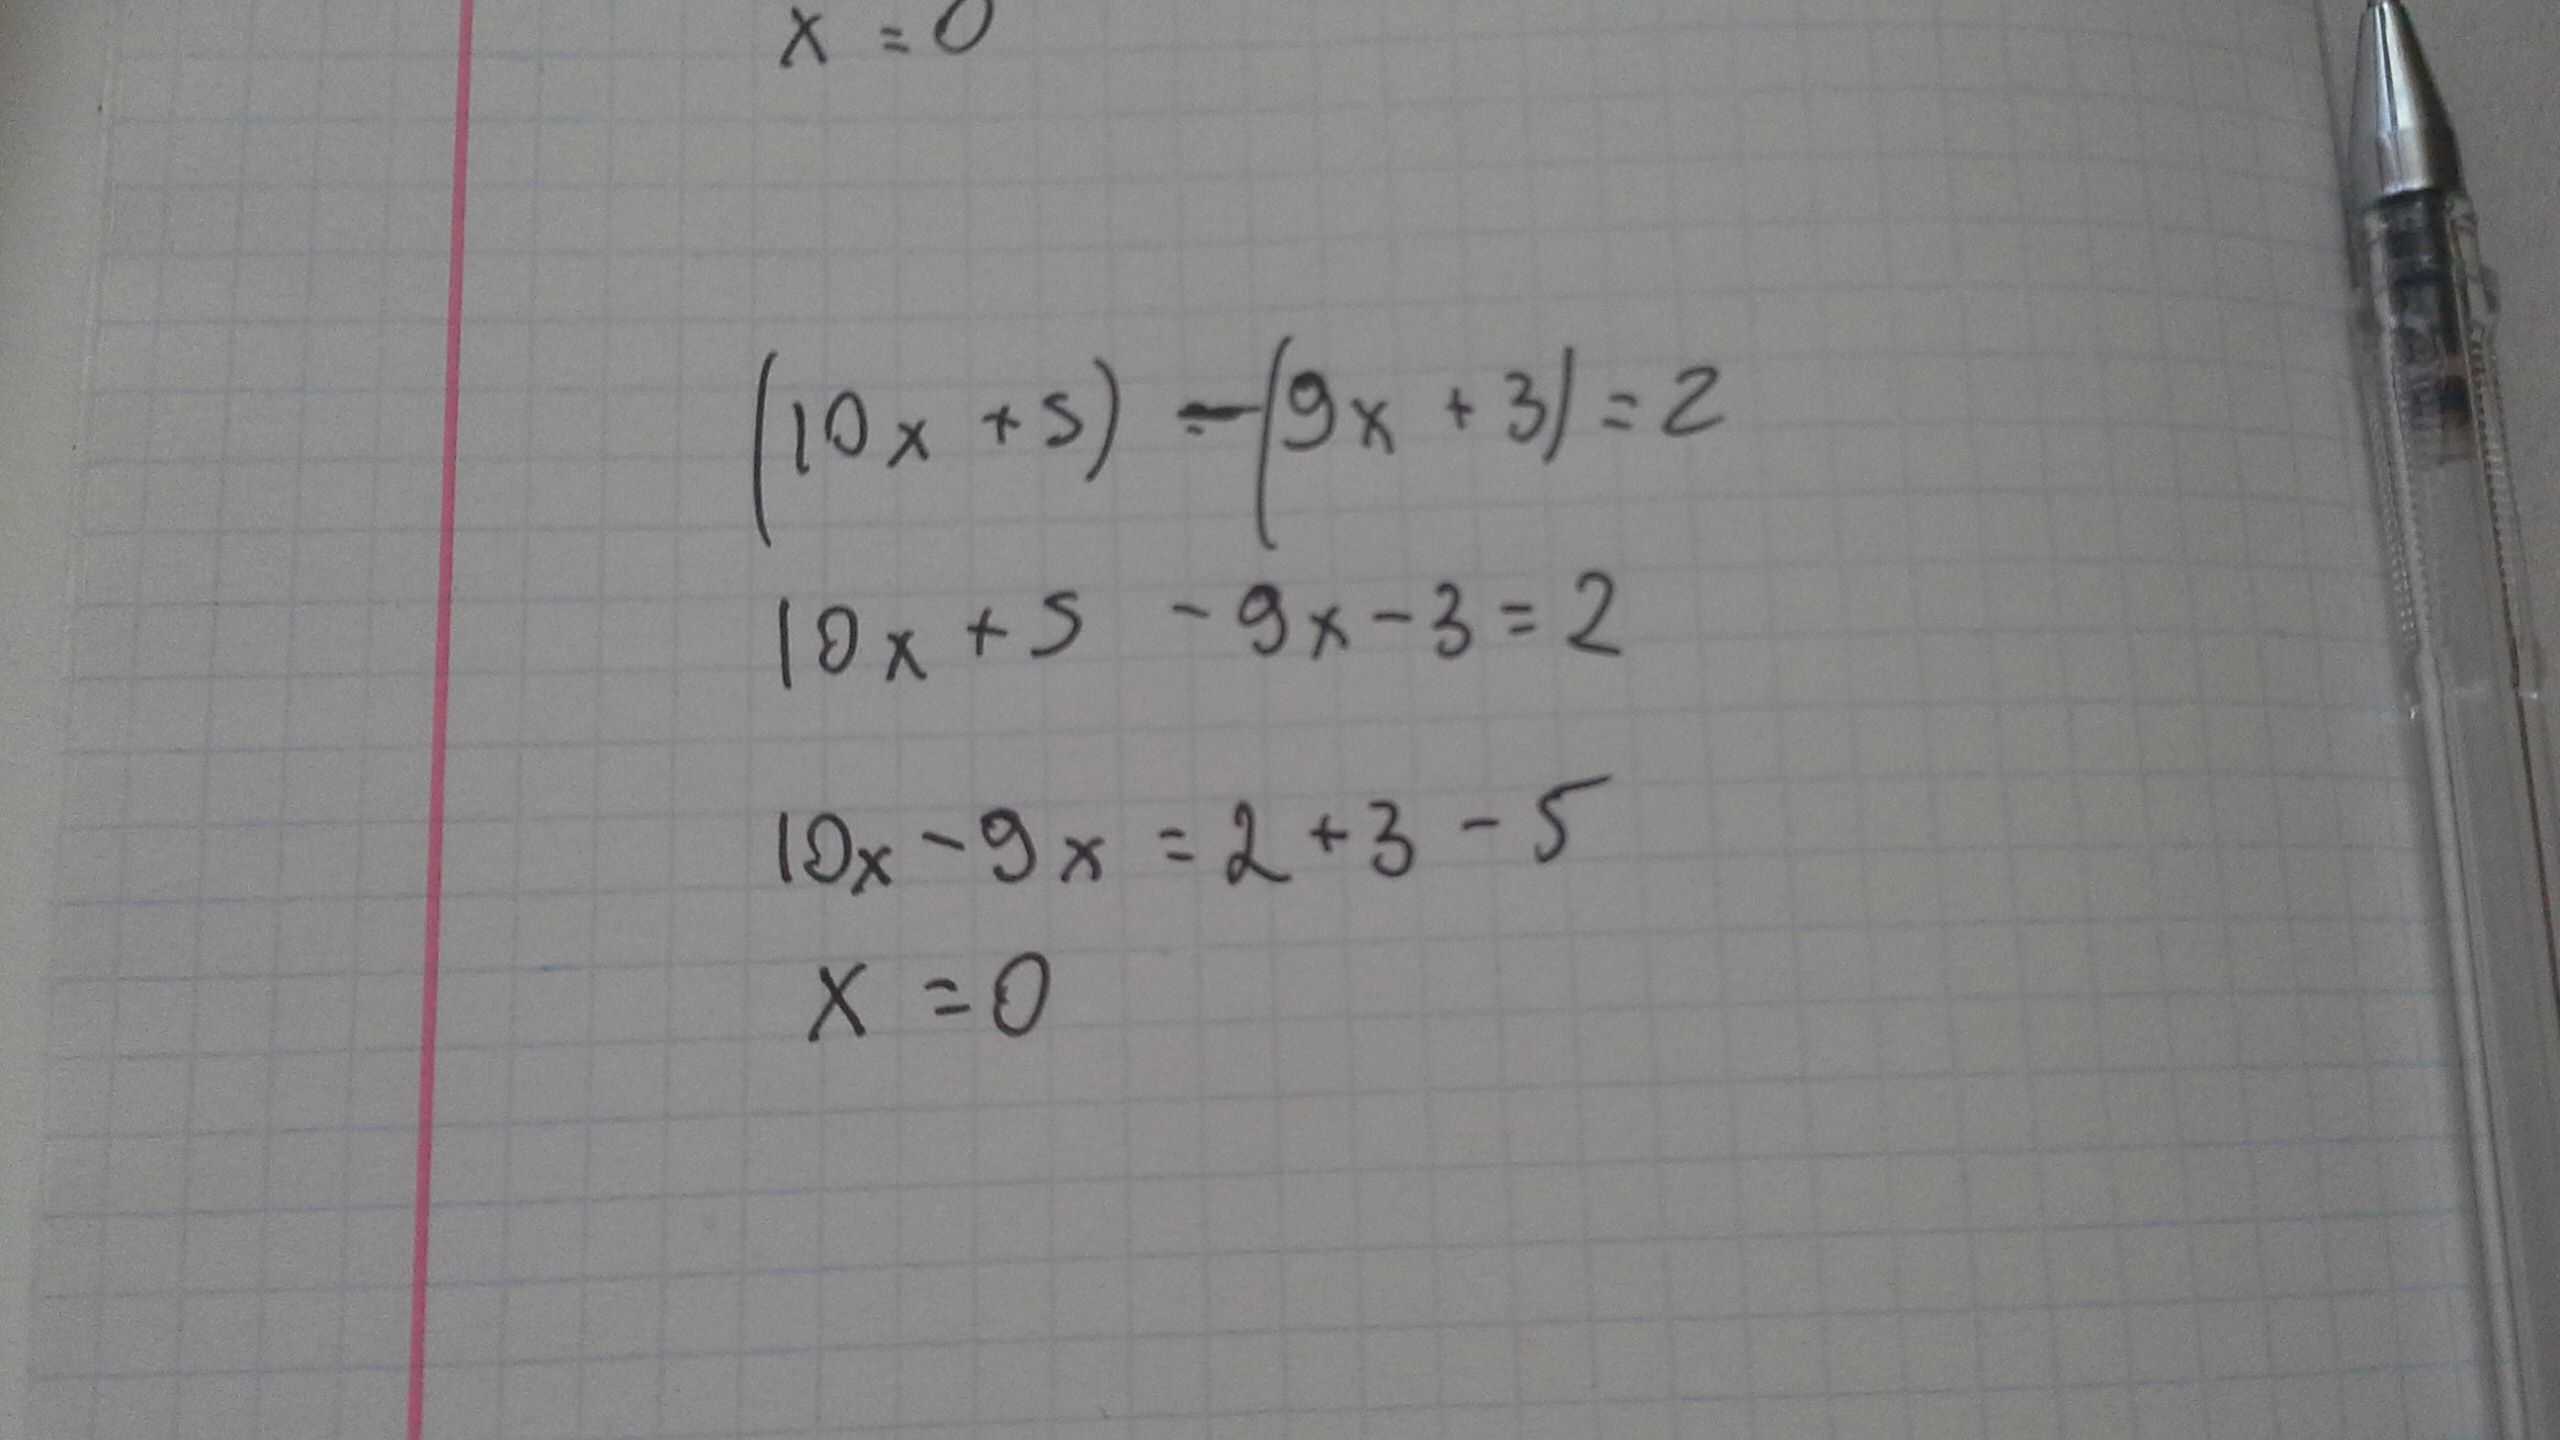 x = 0
(10x + 5) - (9x + 3) = 2
10x + 5 - 9x - 3 = 2
10x - 9x = 2 + 3 - 5
x = 0